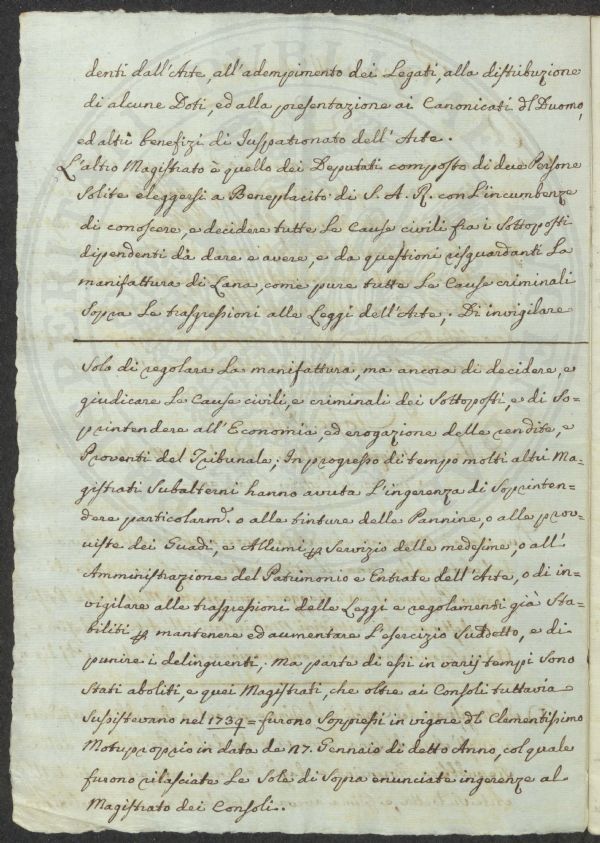 denti dall'Arte, all'adempimento dei Legati, alla distribuzione
di alcune Doti, ed alla presentazione ai Canonicati dl Duomo,
ed altri benefizi di Juspatronato dell'Arte.
L'altro Magistrato è quello dei Deputati composto di due Persone
Solite eleggersi a Beneplacito di S. A. R. con L'incumbenze
di conoscere, e decidere tutte Le Cause civili fra i Sottoposti
dipendenti da dare e avere, e da questioni risguardanti La
manifattura di Lana, come pure tutte Le Cause criminali
Sopra Le trasgressioni alle Leggi dell'Arte; Di invigilare
Solo di regolare La manifattura, ma ancora di decidere, e
giudicare Le Cause civili, e criminali dei Sottoposti, e di So=
printendere all'Economia, ed erogazione delle rendite, e
Proventi del Tribunale; In progresso di tempo molti altri Ma=
gistrati Subalterni hanno avuta L'ingerenza di Soprinten=
dere particolarmᵉ. o alle tinture delle Pannine, o alle prov=
viste dei Guadi, e Allumi p Servizio delle medesime, o all'
Amministrazione del Patrimonio e Entrate dell'Arte, o di in=
vigilare alle trasgressioni delle Leggi e regolamenti già Sta=
biliti p mantenere ed aumentare L'esercizio Suddetto, e di
punire i delinquenti; Ma parte di essi in varij tempi Sono
Stati aboliti, e quei Magistrati, che oltre ai Consoli tuttavia
Sussistevano nel 1739= furono Soppressi in vigore dl Clementissimo
Motuproprio in data de 17. Gennaio di detto Anno, col quale
furono rilasciate Le Sole di Sopra enunciate ingerenze al
Magistrato dei Consoli.